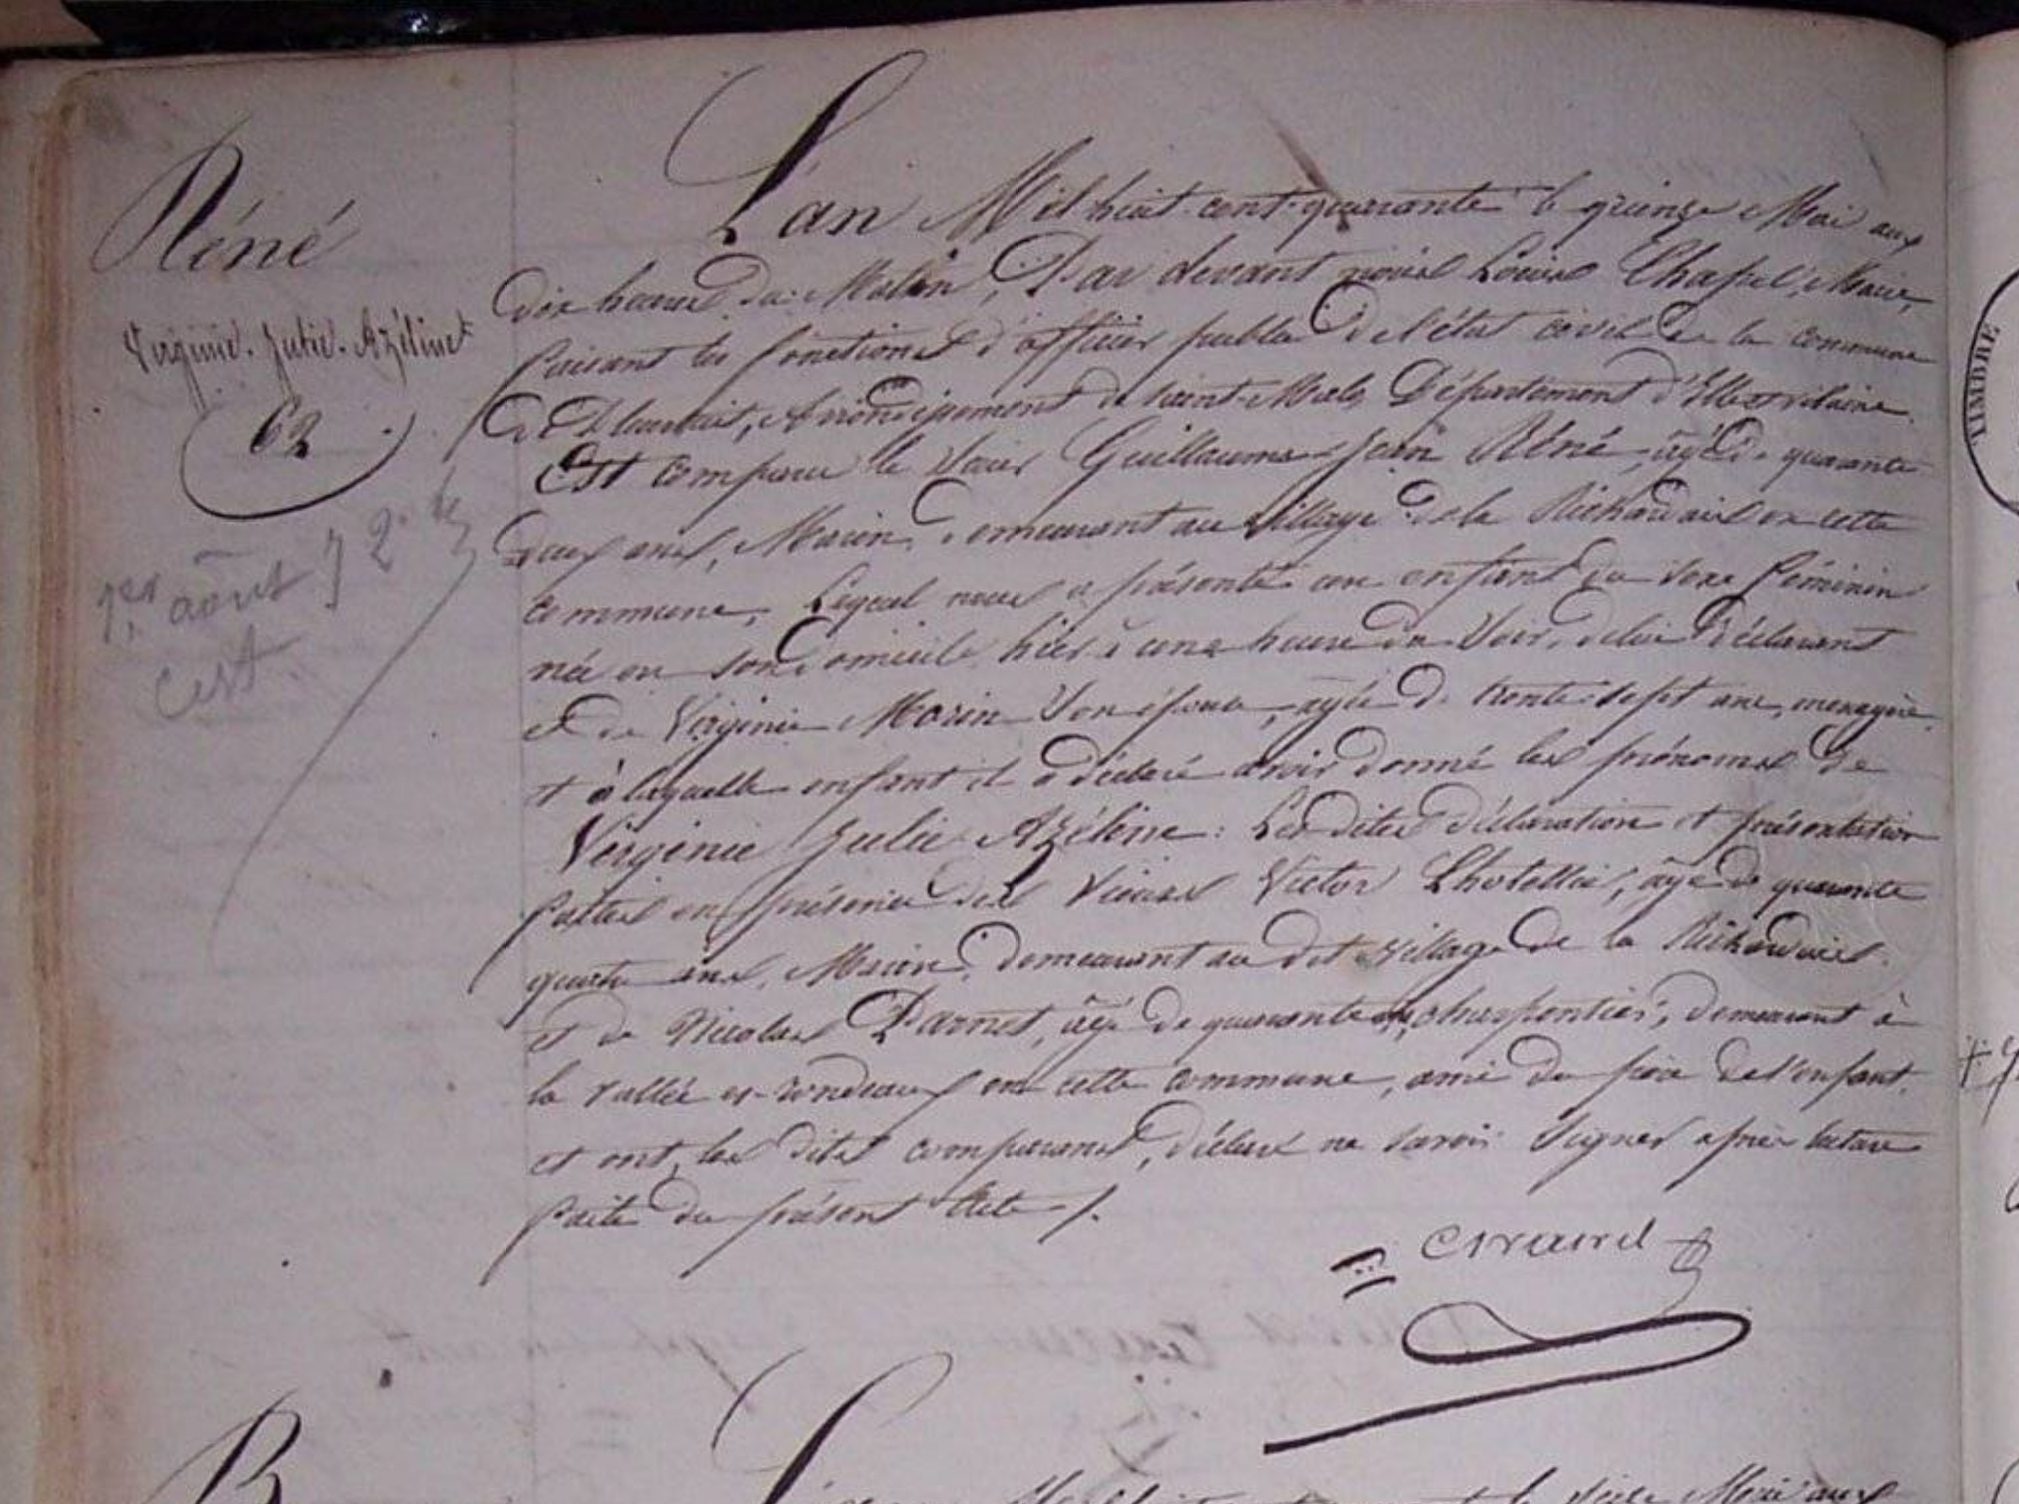 Réné
Virginie. Julie. Azéline
62
1er août 72
L'an Mil huit cent quarante le quinze Mai aux
dix heures du Matin, Par devant nous Louis Chapel, Maire,
faisant les fonctions d'officier public de l'état civil de la commune
de Pleurtuit, Arrondissement de saint-Malo, Département d'Ille et vilaine
Est comparu le Sieur Guillaume Jean Réné, âgé de quarante
deux ans, Marin, demeurant au village de la Richardais en cette
commune, Lequel nous a présenté un enfant du sexe féminin
née en son domicile hier à une heure du Soir, de lui déclarant
et de Virginie Morin Son épouse, âgée de trente-sept ans, menagère
et à laquelle enfant il a déclaré avoir donné les prénoms de
Virginie Julie Azéline : Les dites déclaration et présentation
faites en présence des Sieurs Victor Lhotellier, âgé de quarante
quatre ans, Marin, demeurant au dit village de la Richardais.
et de Nicolas Darnet, âgé de quarante charpentier, demeurant à
la vallée es-rondeaux en cette commune, ami du père de l'enfant,
et ont, les dits comparans, déclaré ne savoir Signer après lecture
faite du présent Acte /.
TIMBRE
L'an
Mai aux